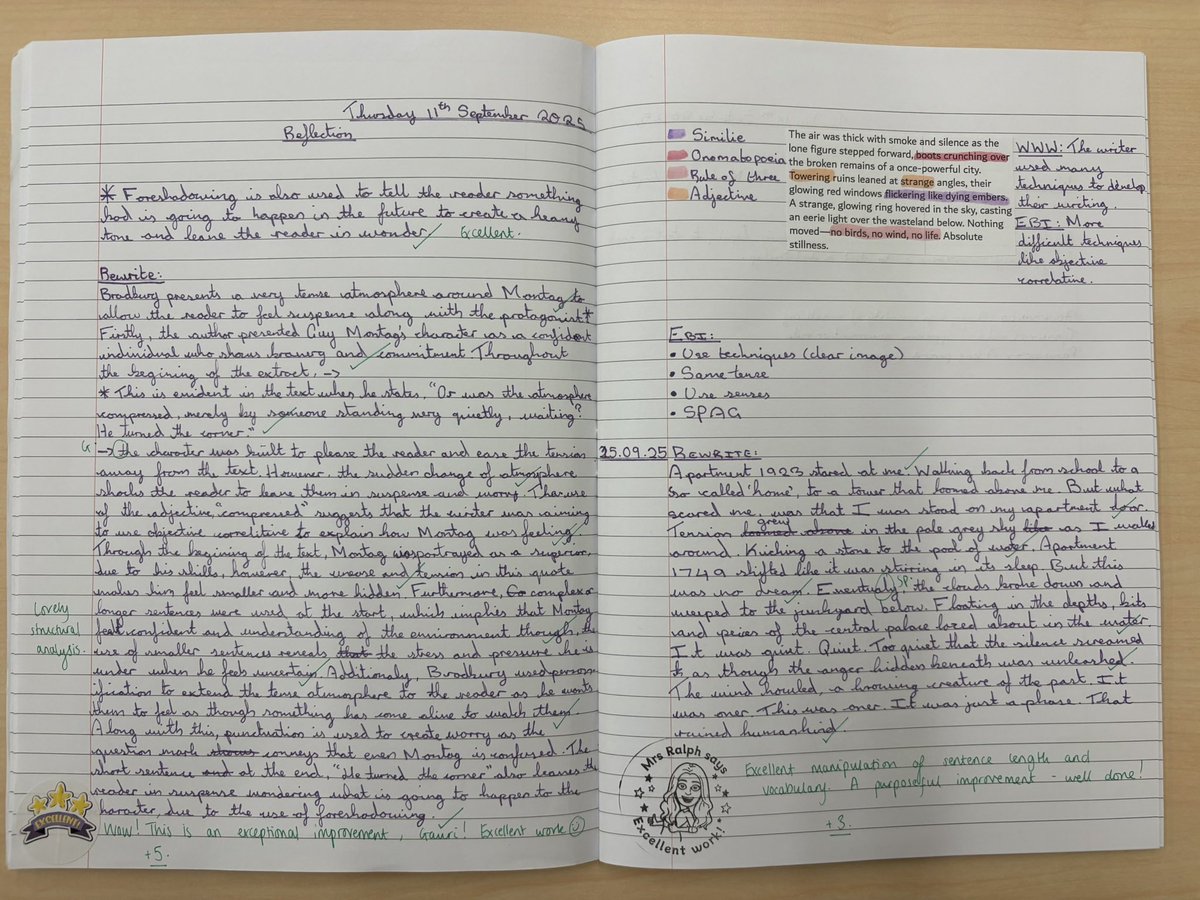 Thursday 11th September 2025
Reflection
* Foreshadowing is also used to tell the reader something
bad is going to happen in the future to create a heavy
tone and leave the reader is wonder. Excellent.
Rewrite:
Bradbury presents a very tense atmosphere around Montag to
allow the reader to feel suspense along with the protagonist.*
Firstly, the author presented Guy Montag's character as a confident
individual who shows bravery and commitment Throughout
the begining of the extract. ->
* This is evident in the text when he states, "Or was the atmosphere
compressed, merely by someone standing very quietly, waiting?
He turned the corner."
G -> the character was built to please the reader and ease the tension
away from the text. However, the sudden change of atmosphere
shocks the reader to leave them in suspense and worry. The use
of the adjective, "compressed" suggests that the writer was aiming
to use objective correlitive to explain how Montag was feeling.
Through the begining of the text, Montag was portrayed as a superior,
due to his skills, however, the unease and tension in this quote
makes him feel smaller and more hidden. Furthermore, complex or
longer sentences were used at the start, which implies that Montag
felt confident and understanding of the environment though, the
use of smaller sentences reveals that the stress and pressure he is
under when he feels uncertain. Additionally, Bradbury used person-
ification to extend the tense atmosphere to the reader as he wants
them to feel as though something has come alive to watch them.
Along with this, punctuation is used to create worry as the
question mark shows conveys that even Montag is confused. The
short sentence and at the end, "He turned the corner" also leaves the
reader in suspense wondering what is going to happen to the
character, due to the use of foreshadowing.
Lovely
structural
analysis.
EXCELLENT!
Wow! This is an exceptional improvement, Gauri! Excellent work
+5.
Similie
Onomatopoeia
Rule of three
Adjective
The air was thick with smoke and silence as the
lone figure stepped forward, boots crunching over
the broken remains of a once-powerful city.
Towering ruins leaned at strange angles, their
glowing red windows flickering like dying embers.
A strange, glowing ring hovered in the sky, casting
an eerie light over the wasteland below. Nothing
moved—no birds, no wind, no life. Absolute
stillness.
WWW: The writer
used many
techniques to develop
their writing.
EBI: More
difficult techniques
like objective
correlative.
EBI:
• Use techniques (clear image)
• Same tense
• Use senses
• SPAG
25.09.25 REWRITE:
Apartment 1923 stared at me. Walking back from school to a
so called 'home', to a tower that loomed above me. But what
scared me, was that I was stood on my apartment door.
Tension loomed above grew in the pale grey sky like as I walked
around. Kicking a stone to the pool of water. Apartment
1749 shifted like it was stirring in its sleep. But this
was no dream. Eventualy, sp. the clouds broke down and
weeped to the junkyard below. Floating in the depths, bits
and peices of the central palace lazed about in the water.
It was quiet. Quiet. Too quiet that the silence screamed
as though the anger hidden beneath was unleashed.
The wind howled, a creature of the past. It
was over. This was over. It was just a phase. That
ruined humankind.
Mrs Ralph says
Excellent work!
Excellent manipulation of sentence length and
vocabulary. A purposeful improvement - well done!
+3.